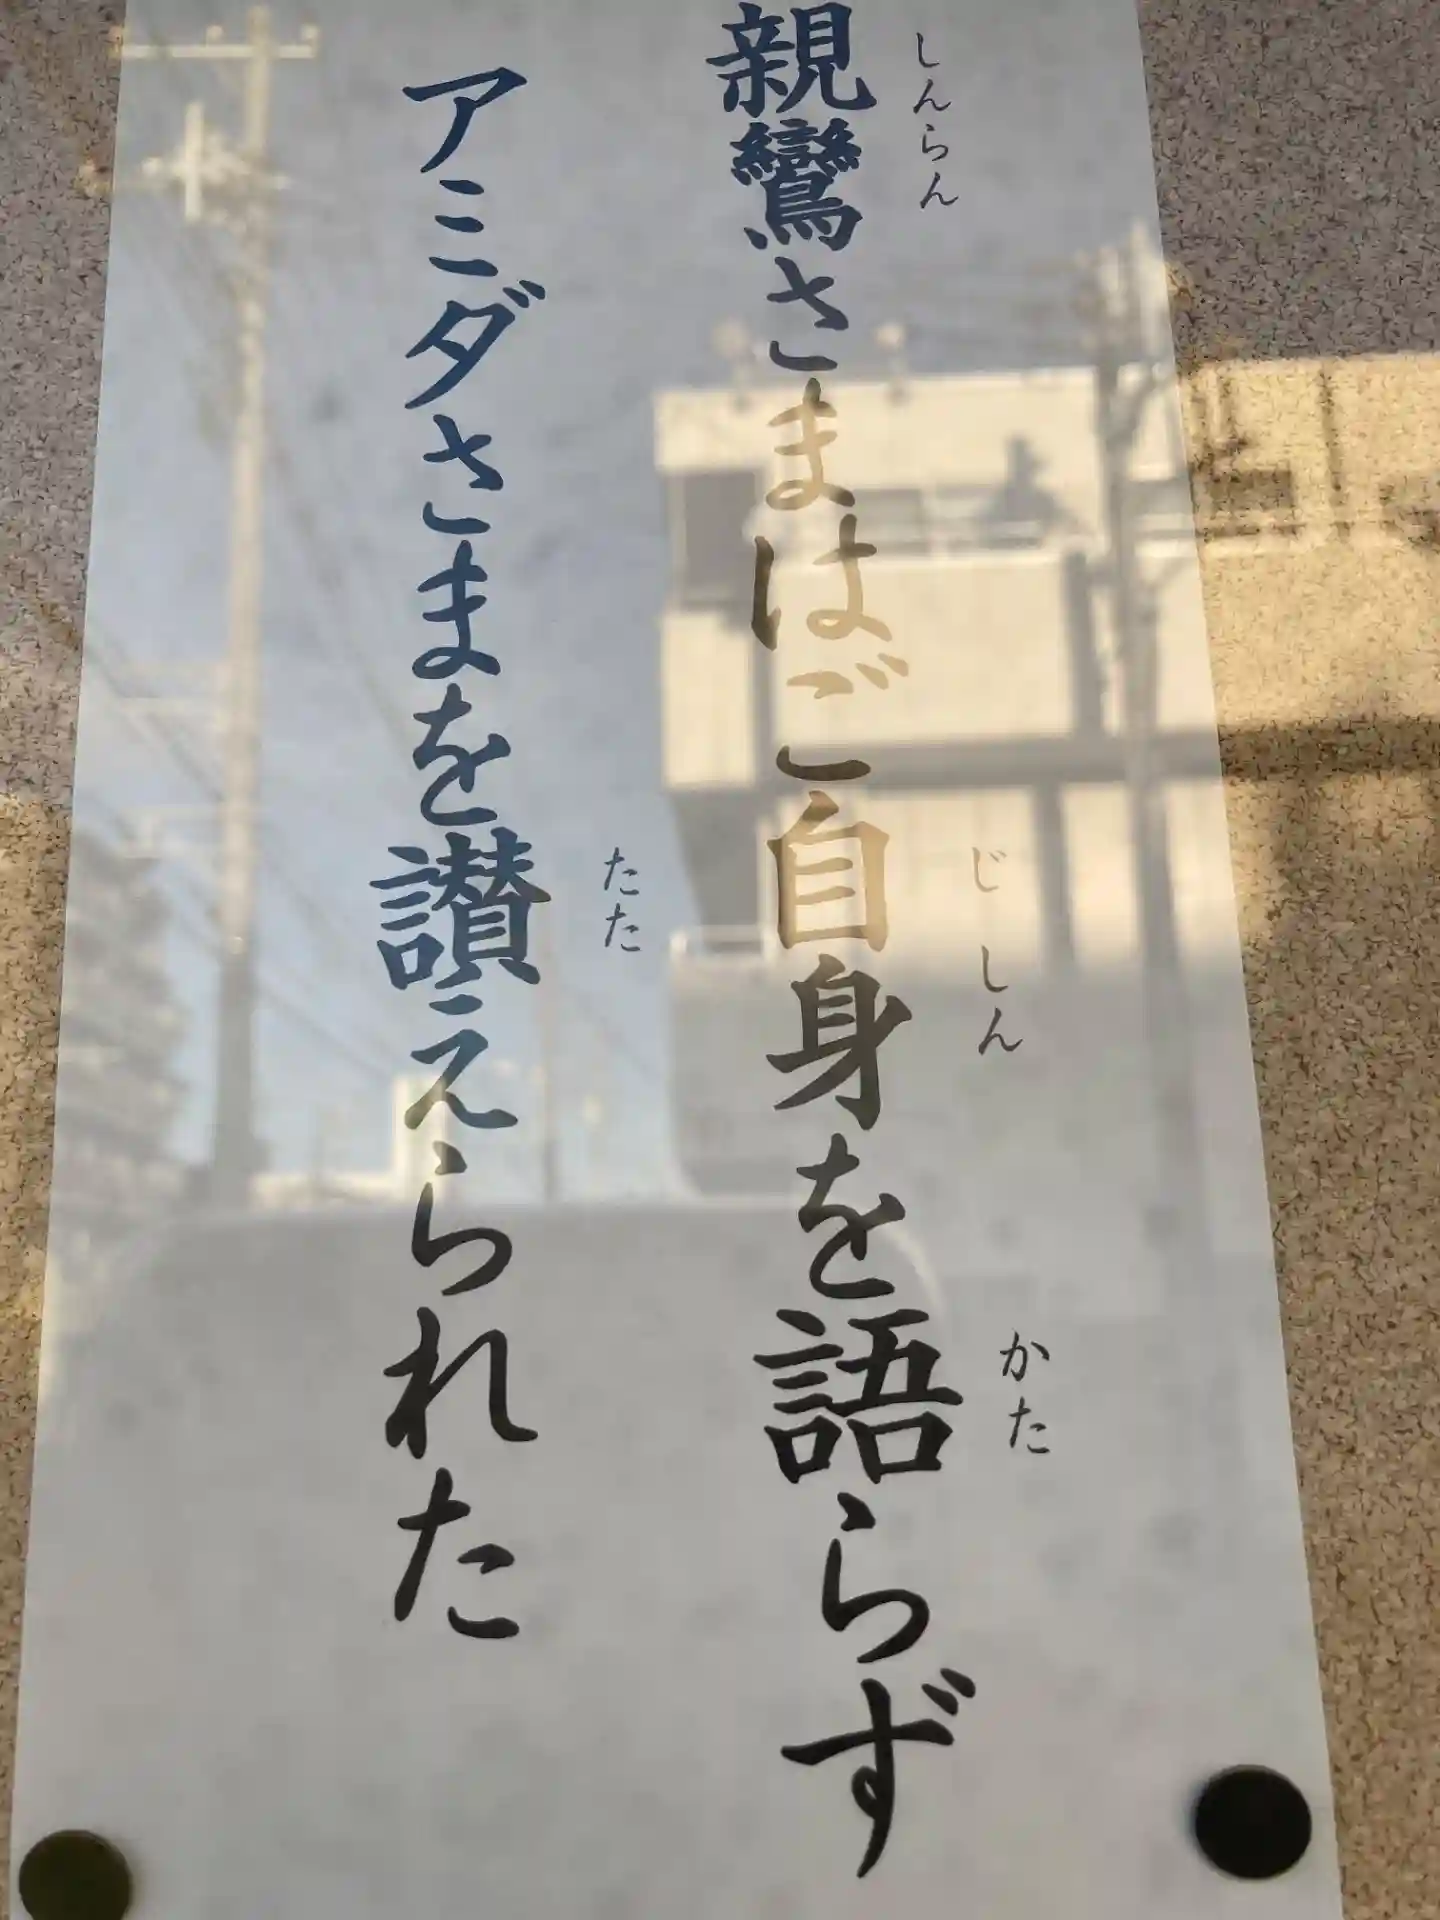 親鸞さまはご自身を語らず
しんらん
じしん
かた
アミダさまを讃えられた
たた